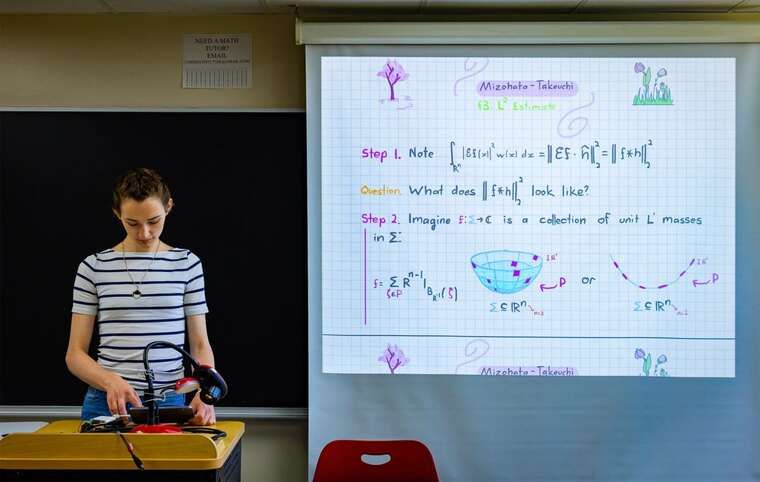 NEED A MATH
TUTOR?
EMAIL
Mizohata-Takeuchi
§3. L² Estimate
Step 1. Note ∫_{ℝⁿ} |Ef(x)|² w(x) dx = ‖Ef · ĥ‖₂² = ‖f*h‖₂²
Question. What does ‖f*h‖₂² look like?
Step 2. Imagine f: Σ → ℂ is a collection of unit L¹ masses
in Σ:
f = Σ_{ζ∈P} R^{n-1} 1_{B_{R⁻¹}(ζ)}
R⁻¹
P
or
R⁻¹
P
Σ ⊆ ℝⁿ
n=3
Σ ⊆ ℝⁿ
n=2
Mizohata-Takeuchi